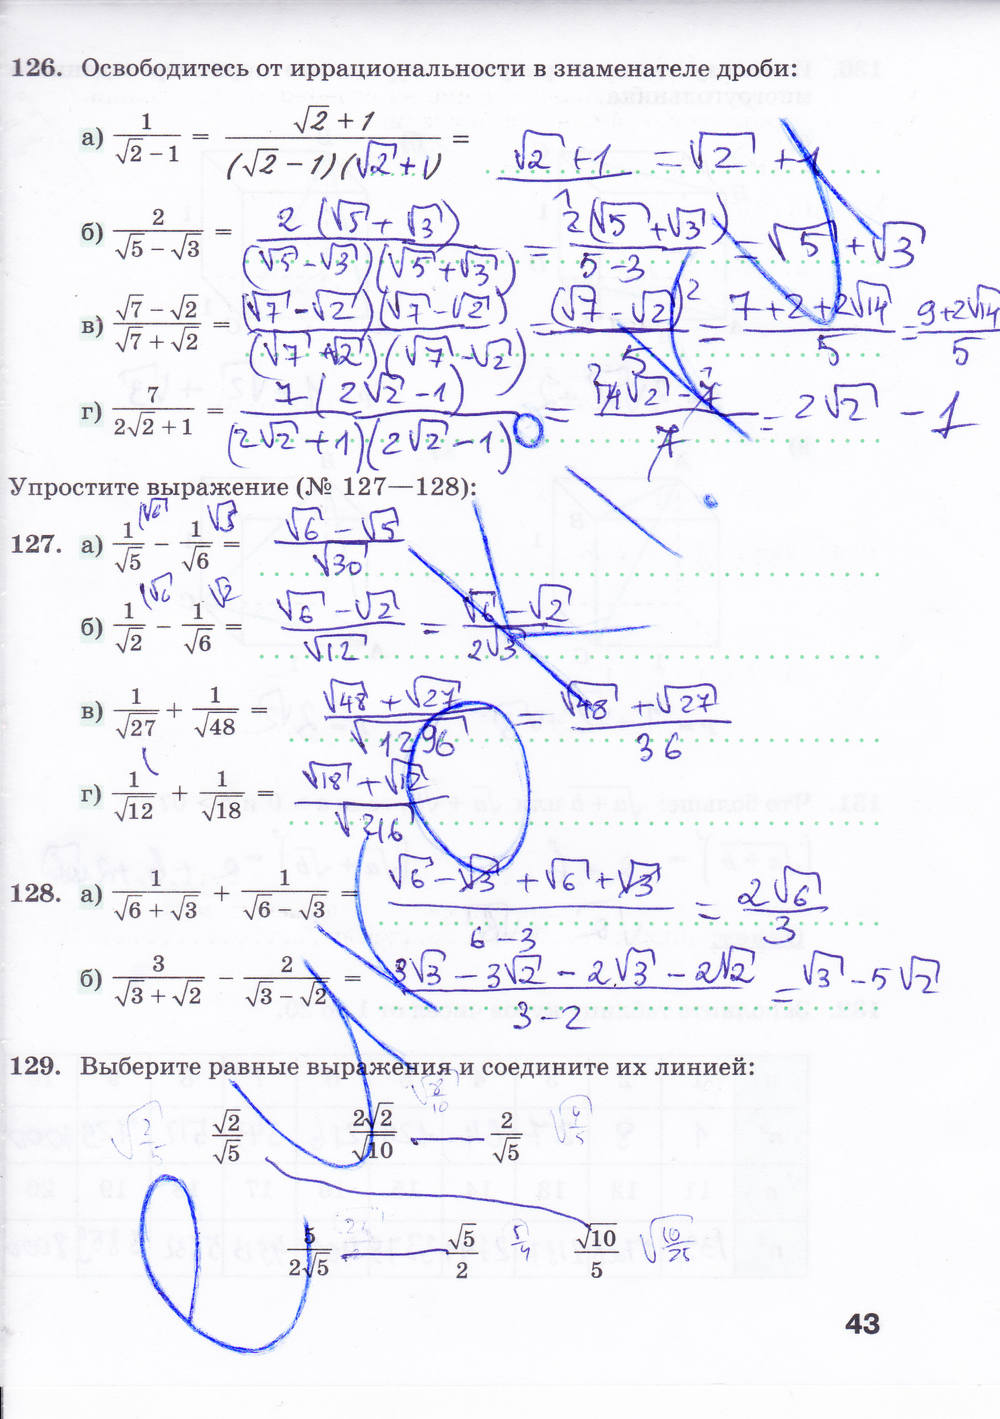 126. Освободитесь от иррациональности в знаменателе дроби:
а) 1/(√2 − 1) = (√2 + 1)/((√2 − 1)(√2 + 1)) = (√2 + 1)/1 = √2 + 1
б) 2/(√5 − √3) = 2(√5 + √3)/((√5 − √3)(√5 + √3)) = 2(√5 + √3)/(5 − 3) = √5 + √3
в) (√7 − √2)/(√7 + √2) = (√7 − √2)(√7 − √2)/((√7 + √2)(√7 − √2)) = (√7 − √2)²/5 = (7 + 2 + 2√14)/5 = (9 + 2√14)/5
г) 7/(2√2 + 1) = 7(2√2 − 1)/((2√2 + 1)(2√2 − 1)) = (14√2 − 7)/7 = 2√2 − 1
Упростите выражение (№ 127—128):
127. а) 1/√5 − 1/√6 = (√6 − √5)/√30
б) 1/√2 − 1/√6 = (√6 − √2)/√12 = (√6 − √2)/(2√3)
в) 1/√27 + 1/√48 = (√48 + √27)/√1296 = (√48 + √27)/36
г) 1/√12 + 1/√18 = (√18 + √12)/√216
128. а) 1/(√6 + √3) + 1/(√6 − √3) = (√6 − √3 + √6 + √3)/(6 − 3) = 2√6/3
б) 3/(√3 + √2) − 2/(√3 − √2) = (3√3 − 3√2 − 2√3 − 2√2)/(3 − 2) = √3 − 5√2
129. Выберите равные выражения и соедините их линией:
√(2/5) √2/√5 2√2/√10 √(8/10) 2/√5 √(4/5)
5/(2√5) √5/2 5/4 √10/5 √(10/25)
43